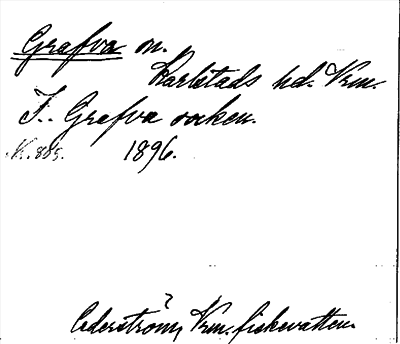 Grafva sn.
Karlstads hd. Vrm.
F. Grafva socken.
N. 885. 1896.
Cederström, Vrm. fiskevatten.